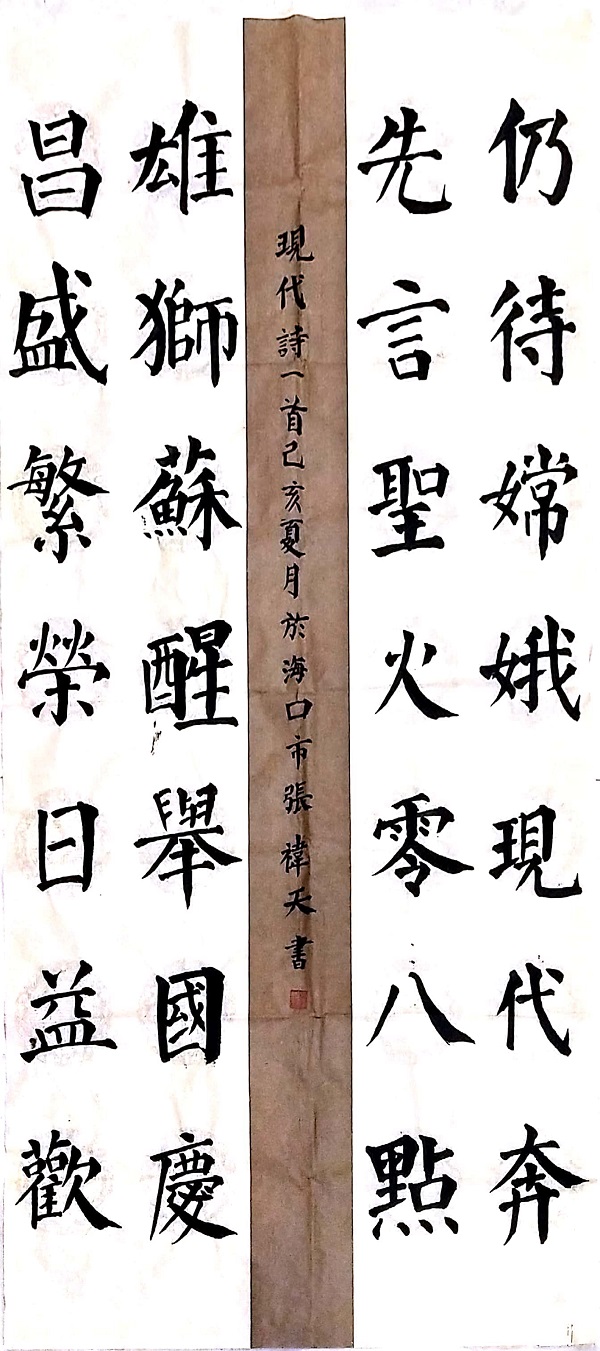 仍待嫦娥現代奔
先言聖火零八點
現代詩一首己亥夏月於海口市張禕天書
雄獅蘇醒舉國慶
昌盛繁榮日益歡